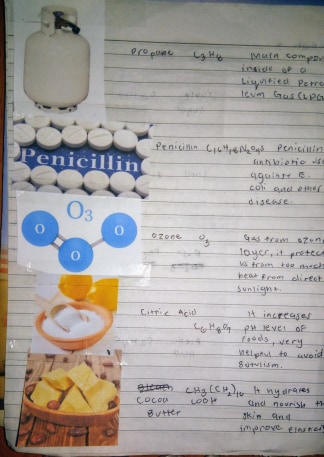 Propane C3H8 Main compon
inside of a
Liquified Petro
leum Gas (LPG
Penicillin
Penicillin C16H18N2O4S Penicillin
antibiotic use
against E.
coli and other
disease.
O3
O O O
Ozone O3 Gas from ozon
layer, it protec
us from too much
heat from direct
sunlight.
Citric Acid It increases
C6H8O7 pH level of
foods, very
helpful to avoid
Botulism.
CH3(CH2)16 It hydrates
Cocoa COOH and nourish th
Butter skin and
improve elastici